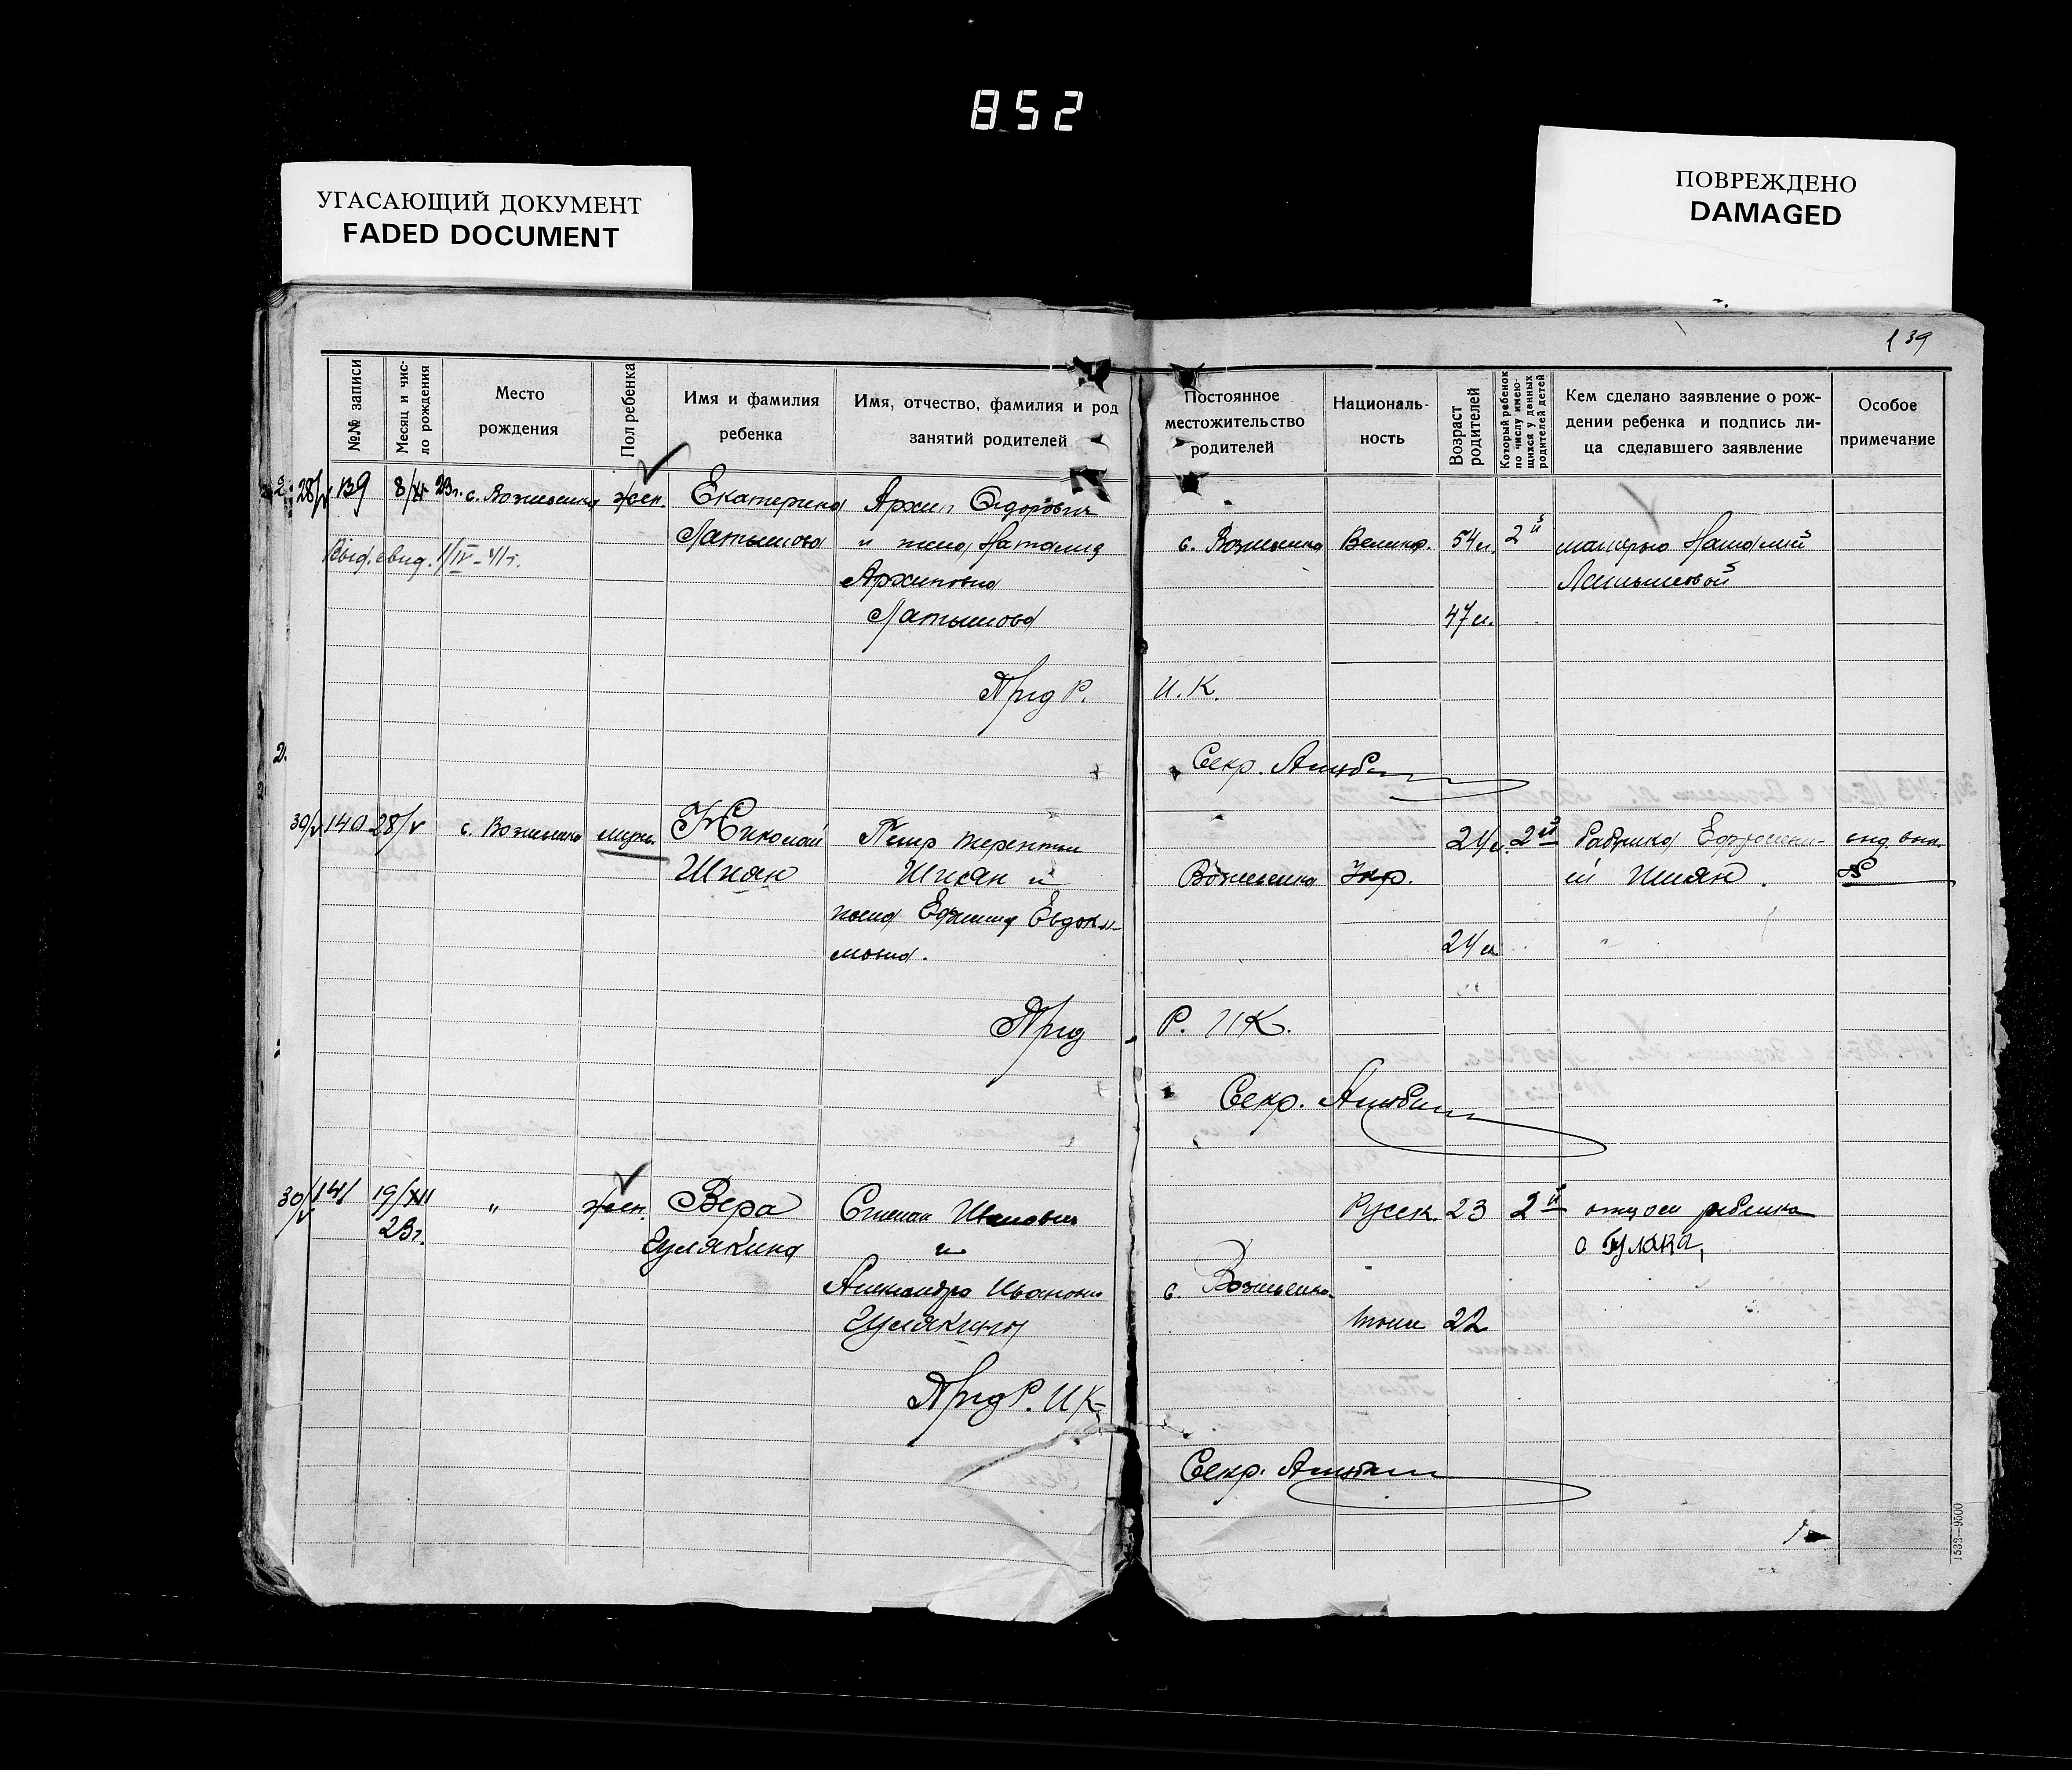 852
УГАСАЮЩИЙ ДОКУМЕНТ
FADED DOCUMENT
ПОВРЕЖДЕНО
DAMAGED
139
№№ записи
Месяц и чис-
ло рождения
Место
рождения
Пол ребенка
Имя и фамилия
ребенка
Имя, отчество, фамилия и род
занятий родителей
Постоянное
местожительство
родителей
Националь-
ность
Возраст
родителей
Который ребенок
по числу имею-
щихся у данных
родителей детей
Кем сделано заявление о рож-
дении ребенка и подпись ли-
ца сделавшего заявление
Особое
примечание
28/V 139 8/XI 23г. с. Вознесенка жен. Екатерина
Латышова
Выд. свид. 1/IV-41г.
Архип Сидорович
и жена Наталия
Архиповна
Латышова
с. Вознесенка Великр. 54 л. 2й
47 л.
матерью Наталией
Латышевой
Пред Р. И. К.
Секр.
30/V 140 28/V с. Вознесенка мужс. Николай
Шиян
Петр Терентьи
Шиян и
жена Евдоки-
мовна.
Вознесенка Укр. 24 л. 2й
24 л.
ей Шиян.
Пред Р. И К.
Секр.
30/V 141 19/XII
23г.
" жен. Вера
Гулякина
Степан Иванович
и
Александра Ивановна
Гулякины
с. Вознесенка
Русск. 23 2й
тоже 22
отцом ребенка
Пред Р. И К
Секр.
1533—9500